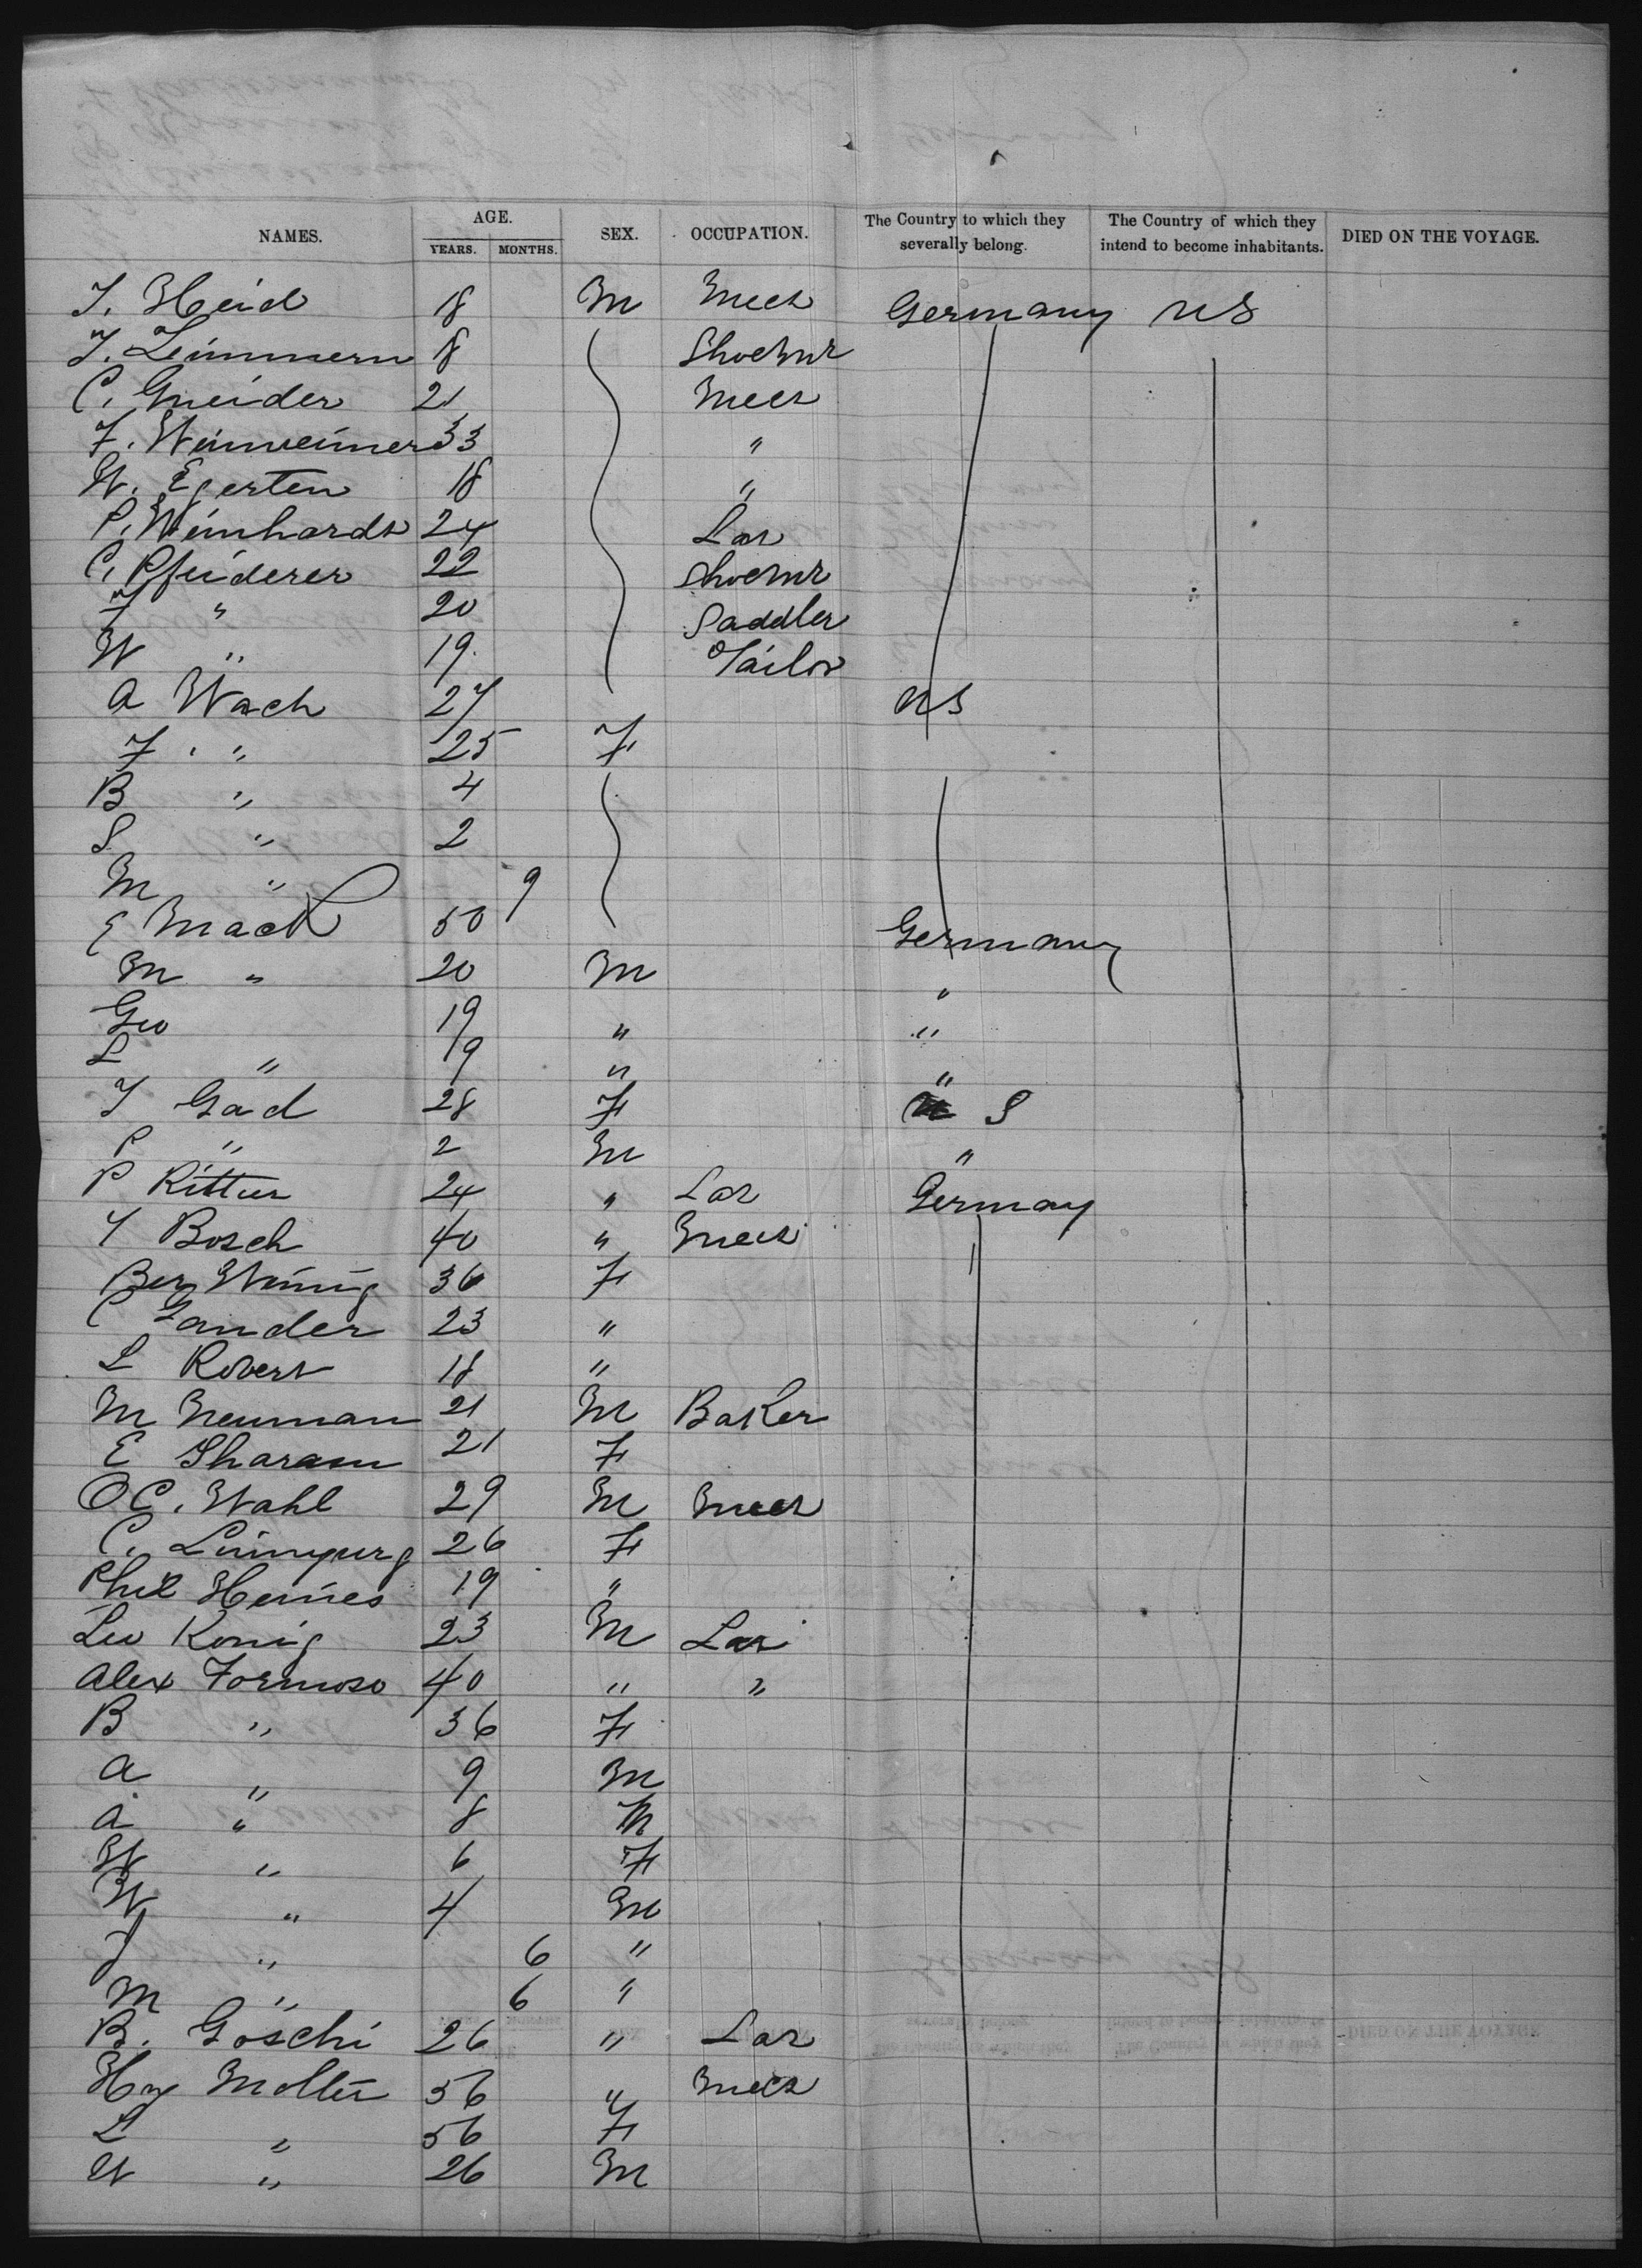 NAMES. AGE. YEARS. MONTHS. SEX. OCCUPATION. The Country to which they severally belong. The Country of which they intend to become inhabitants. DIED ON THE VOYAGE.
J. Heid 18 M Mech Germany US
J. Limmern 18 Shoemr
C. Gneider 21 Mech
F. Weinweimer 33 "
W. Egerten 18 "
P. Weinhardt 24 Lar
C. Pfeiderer 22 Shoemr
J " 20 Saddler
W " 19 Tailor
A Wach 27 US
F. " 25 F
B " 4
S " 2
M " 9
E Mack 50 Germany
M " 20 M "
Geo 19 " "
L " 19 " "
J Gad 28 F U S
P " 2 M "
P Ritter 24 " Lar Germay
J Bosch 40 " Mech
Ber 36 F
C Gander 23 "
L Robert 18 "
M Neuman 21 M Baker
E Sharam 21 F
O C. Wahl 29 M Mech
C. 26 F
Phil Heines 19 "
Leo Konig 23 M Lar
Alex Formoso 40 " "
B " 36 F
A " 9 M
A " 8 M
W " 6 F
W " 4 M
J " 6 "
M " 6 "
B. Goschi 26 " Lar
Hy Molter 56 " Mech
L " 56 F
W " 26 M